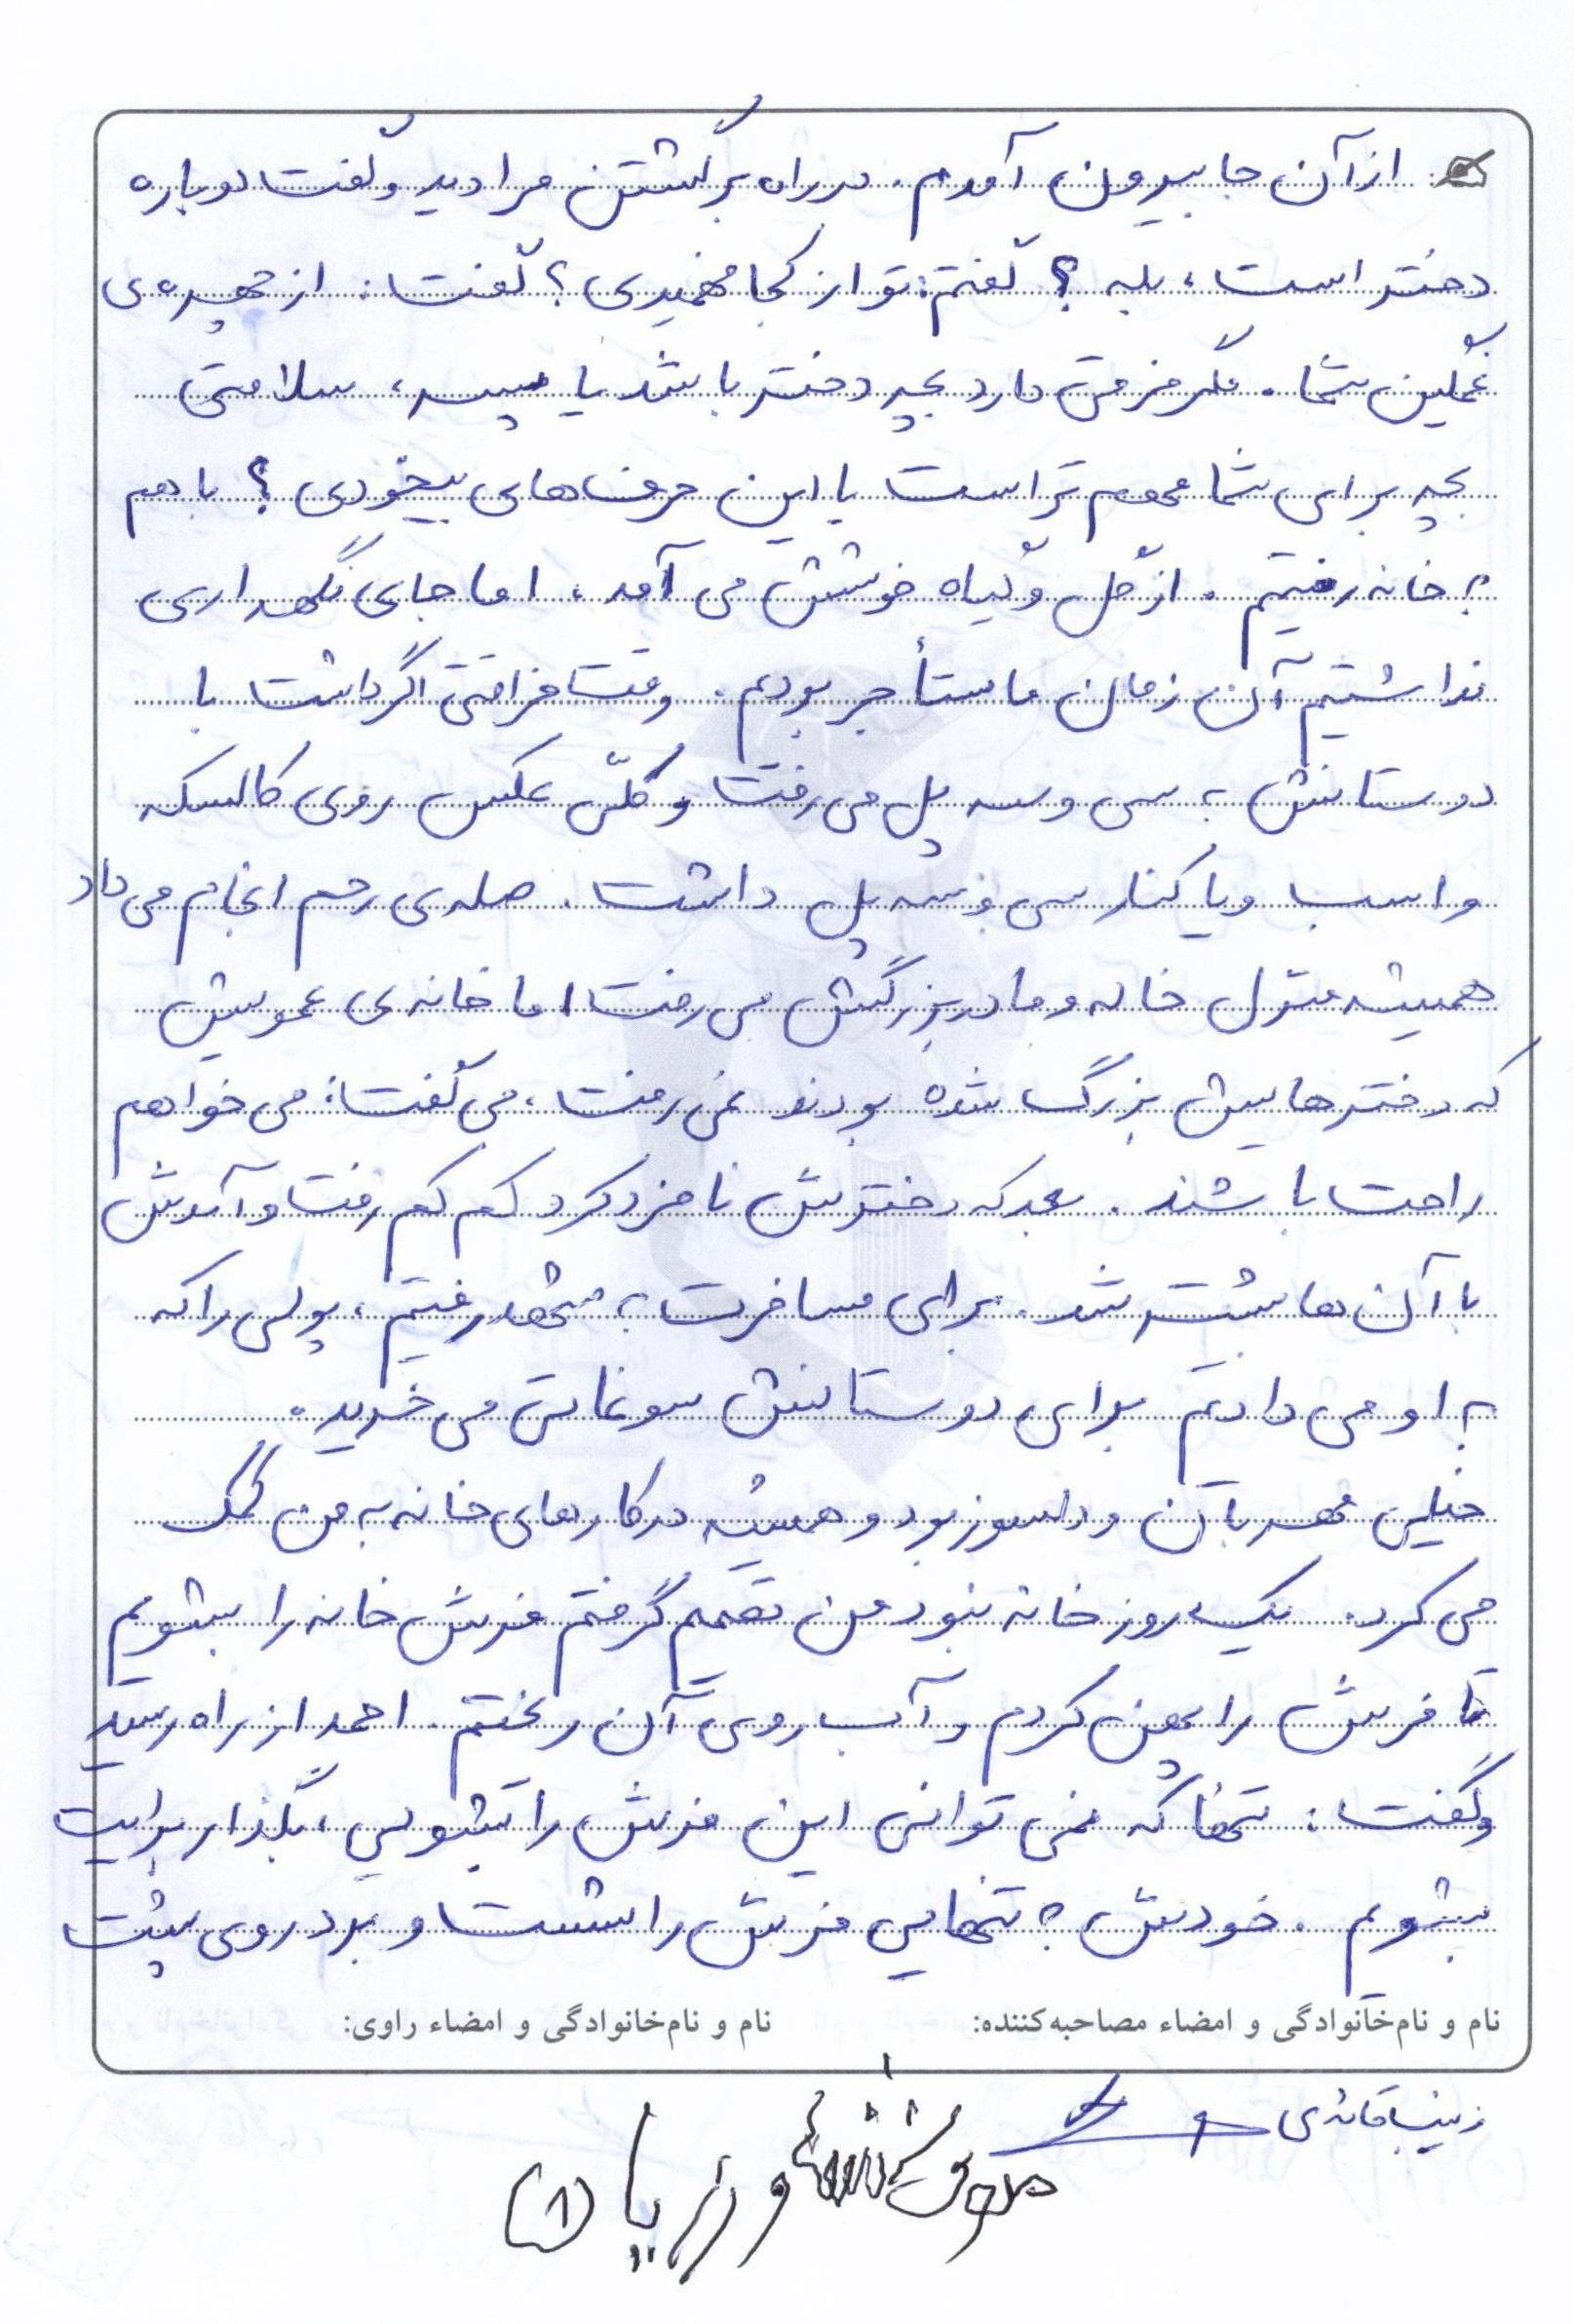 از آن جا بیرون آمدم. در راه برگشتن مرا دید و گفت دوباره
دختر است، بله؟ گفتم: تو از کجا فهمیدی؟ گفت: از چهره‌ی
غمگین شما. مگر فرقی دارد بچه دختر باشد یا پسر، سلامتی
بچه برای شما مهم تر است یا این حرف‌های بیخودی؟ با هم
به خانه رفتیم. از گل و گیاه خوشش می آمد، اما جای نگهداری
نداشتیم آن زمان ما مستأجر بودیم. وقت فراغتی اگر داشت با
دوستانش به سی و سه پل می رفت و کلّی عکس روی کالسکه
و اسب و یا کنار سی و سه پل داشت. صله‌ی رحم انجام می داد
همیشه منزل خاله و مادربزرگش می رفت، اما خانه‌ی عمویش
که دخترهایش بزرگ شده بودند نمی رفت، می گفت: می خواهم
راحت باشند. بعد که دخترش نامزد کرد کم کم رفت و آمدش
با آن ها بیشتر شد. برای مسافرت به مشهد رفتیم، پولی را که
به او می دادیم برای دوستانش سوغاتی می خرید.
خیلی مهربان و دلسوز بود و همیشه در کارهای خانه به من کمک
می کرد. یک روز خانه نبود من تصمیم گرفتم فرش خانه را بشویم
تا فرش را پهن کردم و آب روی آن ریختم. احمد از راه رسید
و گفت: تنها که نمی توانی این فرش را بشویی، بگذار برایت
بشویم. خودش به تنهایی فرش را شست و برد روی پشت
نام و نام‌خانوادگی و امضاء مصاحبه‌کننده: نام و نام‌خانوادگی و امضاء راوی:
زینب
(۸)